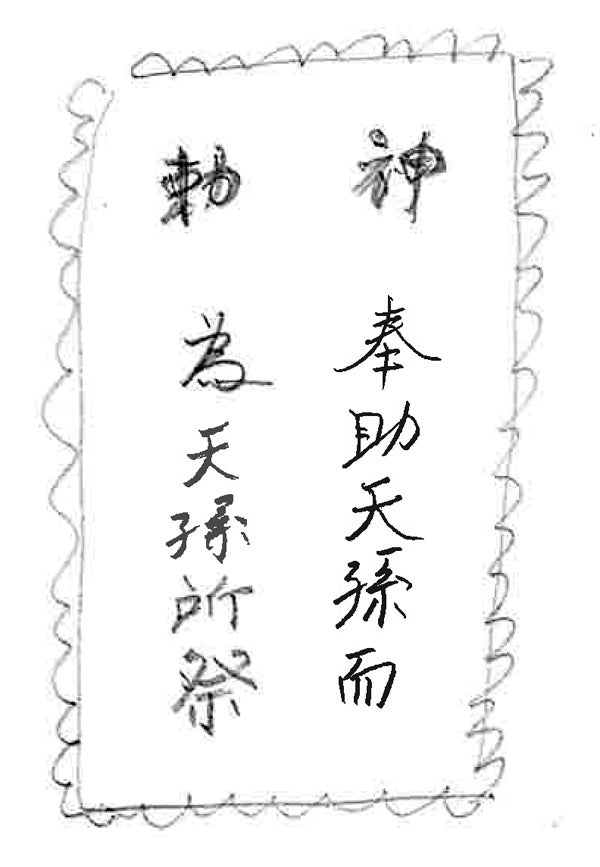 神勅
奉助天孫而
為天孫所祭